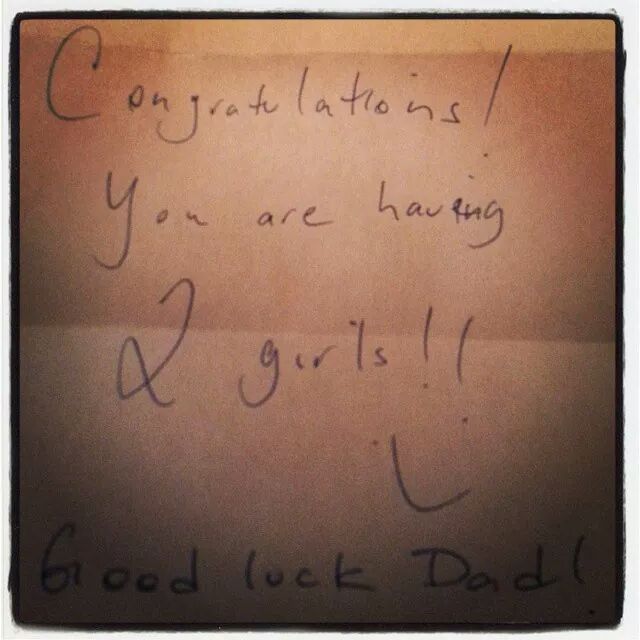 Congratulations!
You are having
2 girls!!
Good luck Dad!